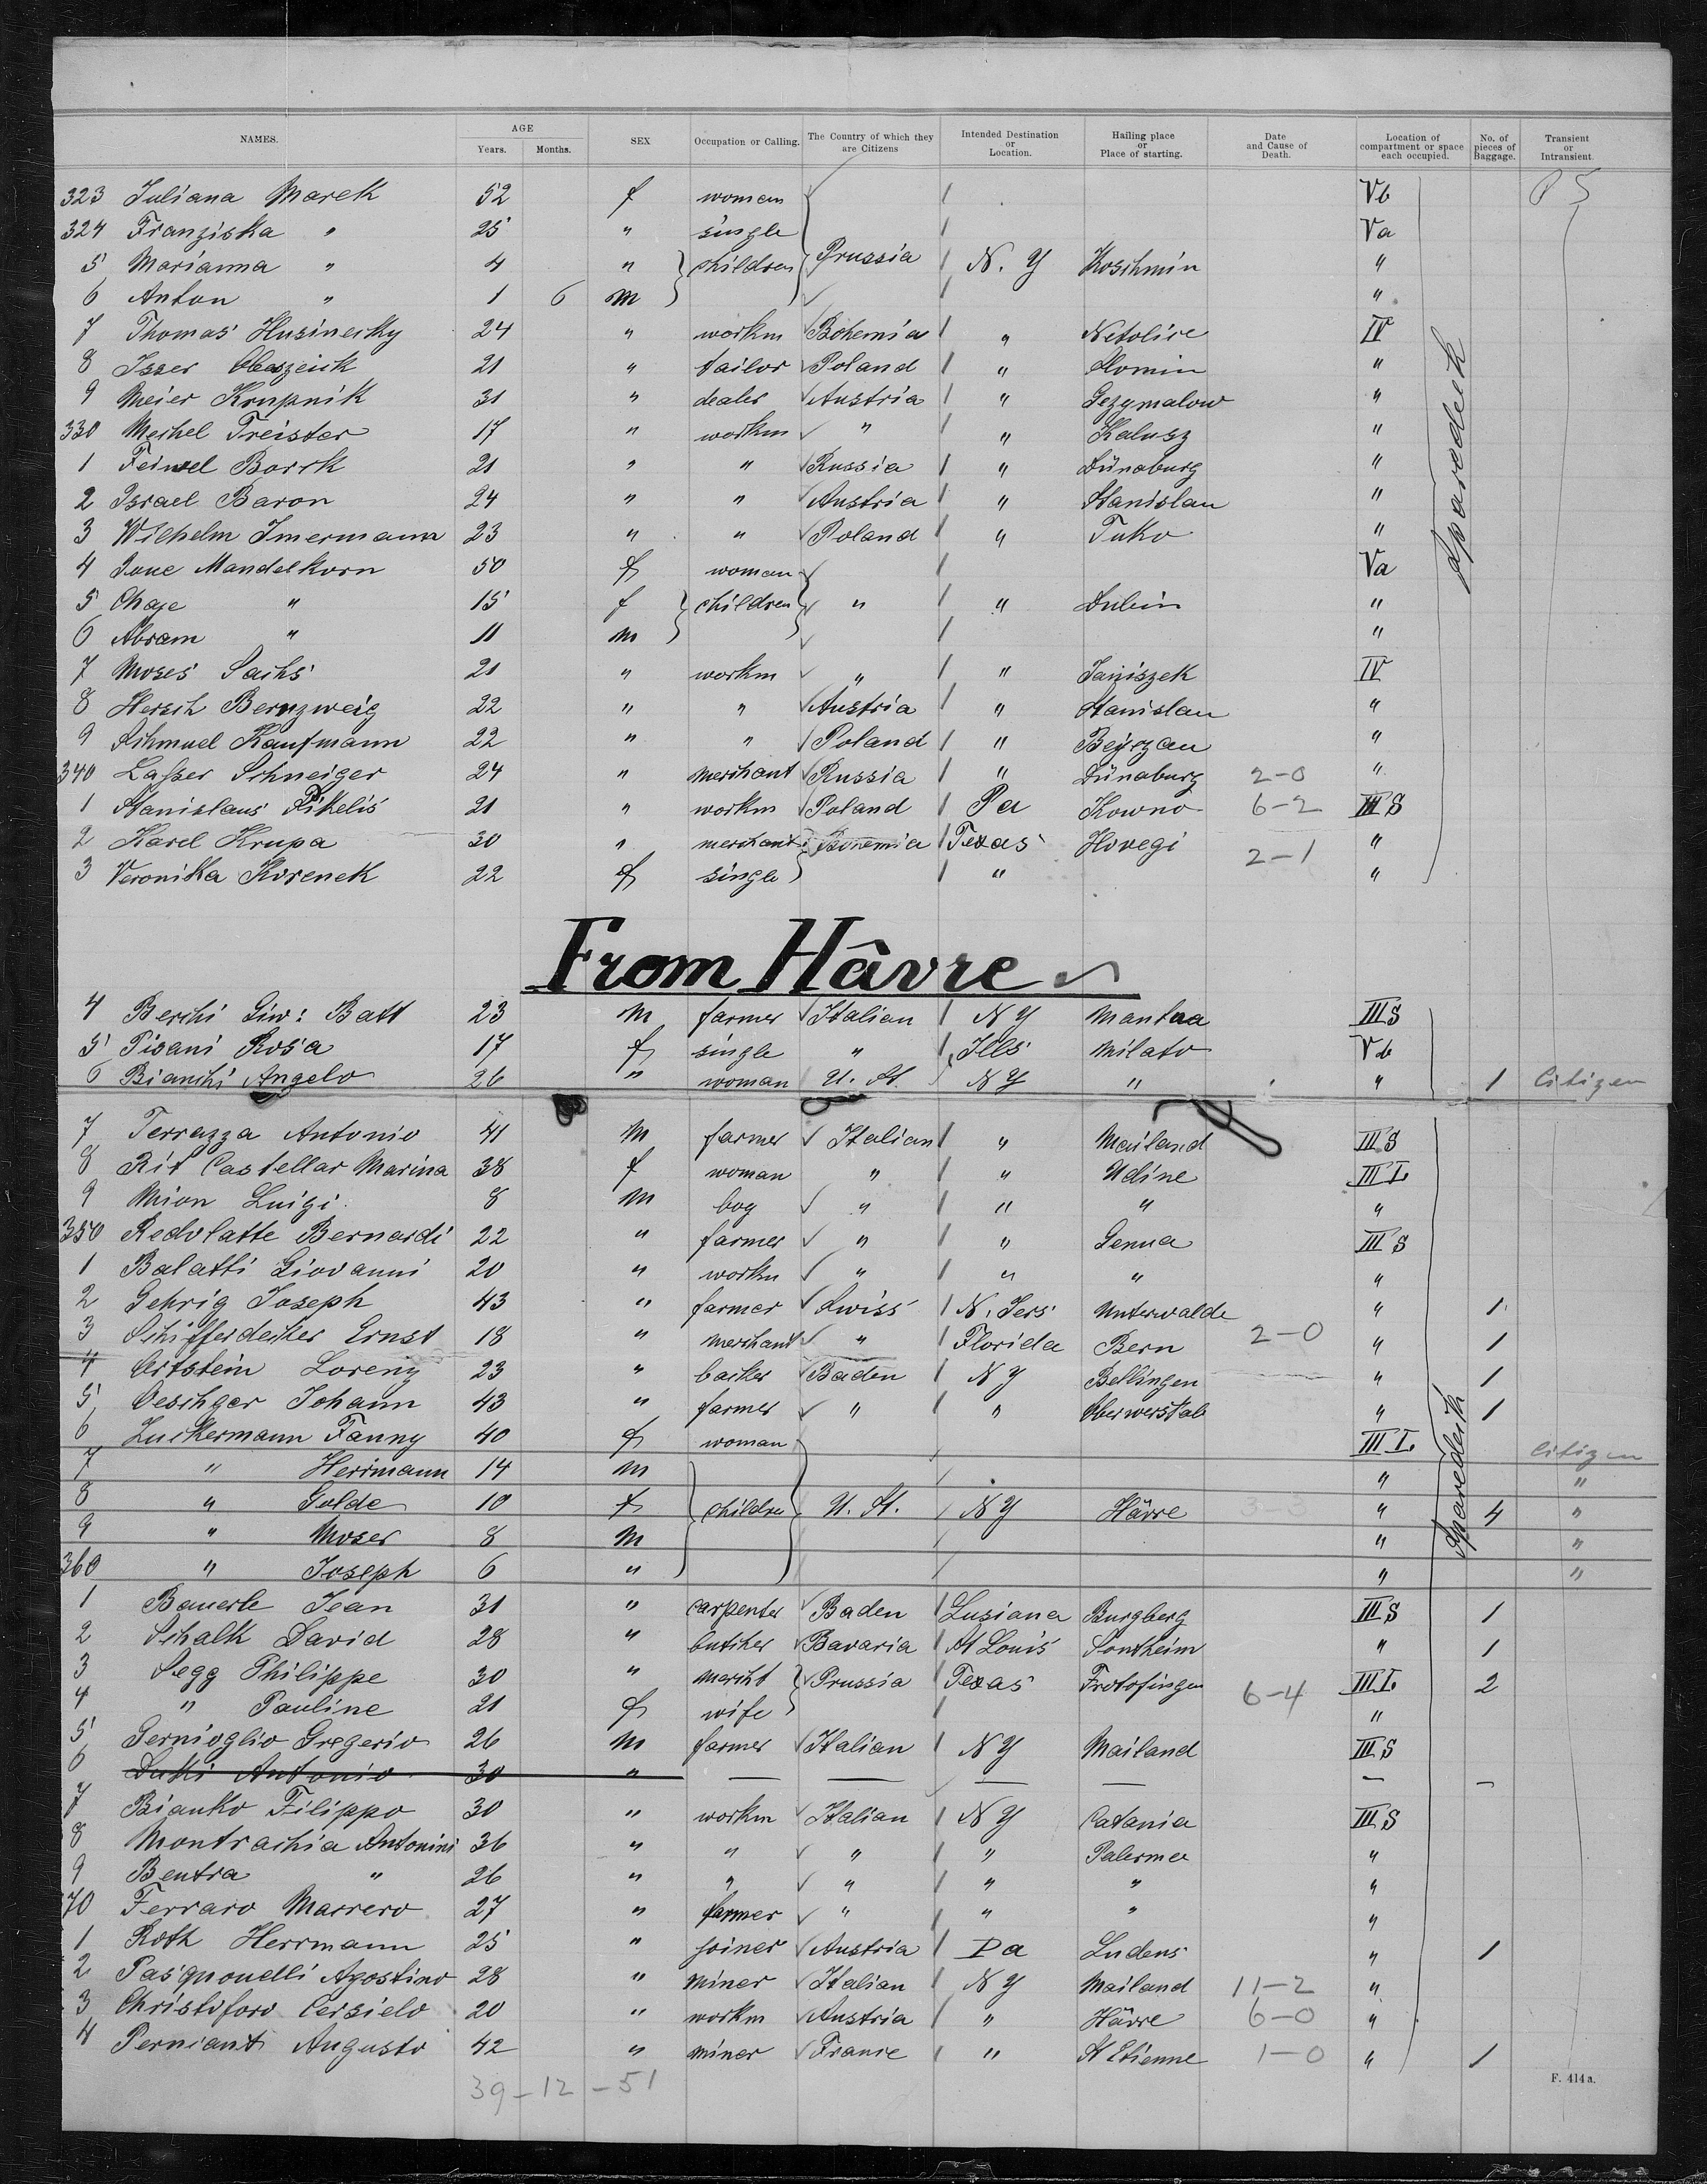 NAMES. AGE Years. Months. SEX Occupation or Calling. The Country of which they are Citizens Intended Destination or Location. Hailing place or Place of starting. Date and Cause of Death. Location of compartment or space each occupied. No. of pieces of Baggage. Transient or Intransient.
323 Juliana Marek 52 f woman Vb P 5
324 Franziska " 25 " single Va
5 Marianna " 4 " children Prussia N. Y Koschmin "
6 Anton " 1 6 m "
7 Thomas Husinecky 24 " workm Bohemia " Netolice IV
8 Isser 21 " tailor Poland " "
9 Meier Krupnik 31 " dealer Austria " "
330 Mechel Treister 17 " workm " " Kalusz "
1 Feiwel Borrk 21 " " Russia " Dünaburg "
2 Israel Baron 24 " " Austria " Stanislau "
3 Wilhelm Imermann 23 " " Poland " Tuko "
4 Mandelkorn 50 f woman Va
5 Chaje " 15 f children " " "
6 Abram " 11 m "
7 Moses Sachs 21 " workm " " Janiszek IV
8 Hersch Bernzweig 22 " " Austria " Stanislau "
9 Schmuel Kaufmann 22 " " Poland " "
340 Lasser Schneiger 24 " merchant Russia " Dünaburg 2-0 "
1 Stanislaus Pikelis 21 " workm Poland Pa Kowno 6-2 III S
2 Karel Krupa 30 " merchant Bohemia Texas Hovegi "
2-1
3 Veronika Korenek 22 f single " "
Sparedeck
From Hâvre
4 Berchi Giov: Batt 23 m farmer Italian N Y Mantua III S
5 Pisani Rosa 17 f single " Ills Milato Vb
6 Bianchi Angelo 26 " woman U. St. N Y " " 1 Citizen
7 Terrazza Antonio 41 m farmer Italian " Mailand III S
8 Rit Castellar Marina 38 f woman " " Udine III L
9 Mion Luigi 8 m boy " " " "
350 Redolatte Bernardi 22 " farmer " " Genua III S
1 Balatti Giovanni 20 " workm " " " "
2 Gehrig Joseph 43 " farmer Swiss N. Jers Unterwalde " 1
3 Schifferdecker Ernst 18 " merchant " Florida Bern 2-0 " 1
4 Ortstein Lorenz 23 " backer Baden N Y Bellingen " 1
5 Oeschger Johann 43 " farmer " " " 1
6 Zuckermann Fanny 40 f woman III L Citizen
7 " Herrmann 14 m " "
8 " Golde 10 f children U. St. N Y Hâvre 3-3 " 4 "
9 " Moses 8 m " "
360 " Joseph 6 " " "
Sparedeck
1 Bauerle Jean 31 " carpenter Baden Lusiana Burgberg III S 1
2 Schalk David 28 " butcher Bavaria St Louis Sontheim " 1
3 Segg Philippe 30 " mercht Prussia Texas Frotofingen 6-4 III L 2
4 " Pauline 21 f wife "
5 Sernioglio Gregerio 26 m farmer Italian N Y Mailand III S
6 Antonio 30 " — — — — — —
7 Bianko Filippo 30 " workm Italian N Y Catania III S
8 Montrachia Antonini 36 " " " " Palermo "
9 Bentra " 26 " " " " " "
70 Ferraro Marrero 27 " farmer " " " "
1 Roth Herrmann 25 " joiner Austria Pa Ludens " 1
2 Pasquouelli Agostino 28 " miner Italian N Y Mailand 11-2 "
3 Christoforo Cersielo 20 " workm Austria " Hâvre 6-0 "
4 Pernianti Augusto 42 " miner France " St Etienne 1-0 " 1
39-12-51
F. 414a.